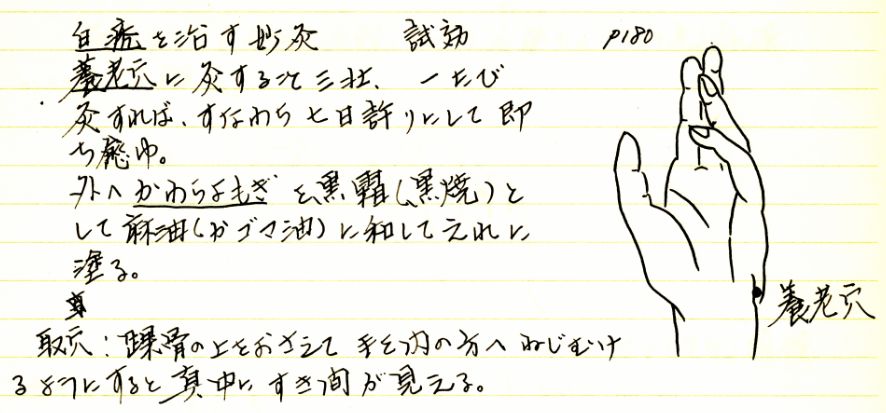 白疣を治す妙灸　試効　p180
養老穴に灸すること三壮、一たび
灸すれば、すなわち七日許りにして即
ち癒ゆ。
外へかわらよもぎを黒霜(黒焼)と
して麻油(かゴマ油)に和してえれに
塗る。
養老穴
取穴：踝骨の上をおさえて手を内の方へねじむけ
るようにすると真中にすき間が見える。